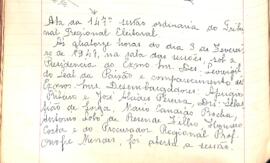 Ata da 147ª sessão ordinaria do Tribu-
nal Regional Eleitoral.
Ás quatorze horas do dia 3 de Feverei-
ro de 1947, na sala das sessões, sob a
Presidencia do Exmo Snr. Des. Leovigil-
do Leal da Paixão e comparecimento dos
Exmos Snrs Desembargadores:
Ribeiro e José Alcides Pereira, Drs.
Mario Rocha,
Antonio Lobo de Resende Filho
Costa e do Procurador Regional Prof.
Onofre Mendes, foi aberta a sessão.